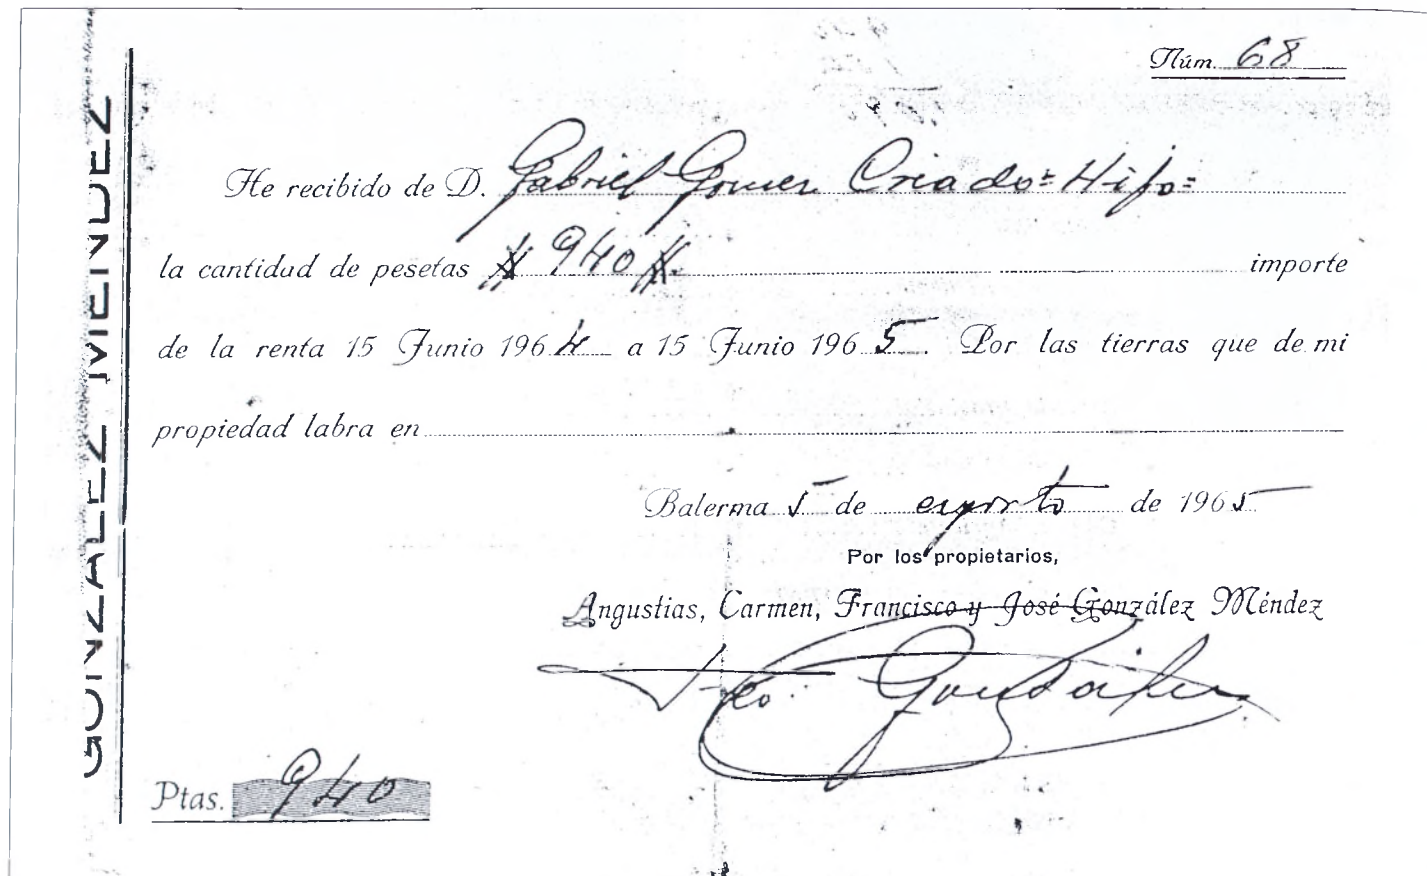 GONZALEZ MENDEZ
Núm. 68
He recibido de D. Gabriel Gomez Criado = Hijo =
la cantidad de pesetas # 940 #. importe
de la renta 15 Junio 1964 a 15 Junio 1965. Por las tierras que de mi
propiedad labra en
Balerma 5 de agosto de 1965
Por los propietarios,
Angustias, Carmen, Francisco y José González Méndez
Fco. González
Ptas. 940